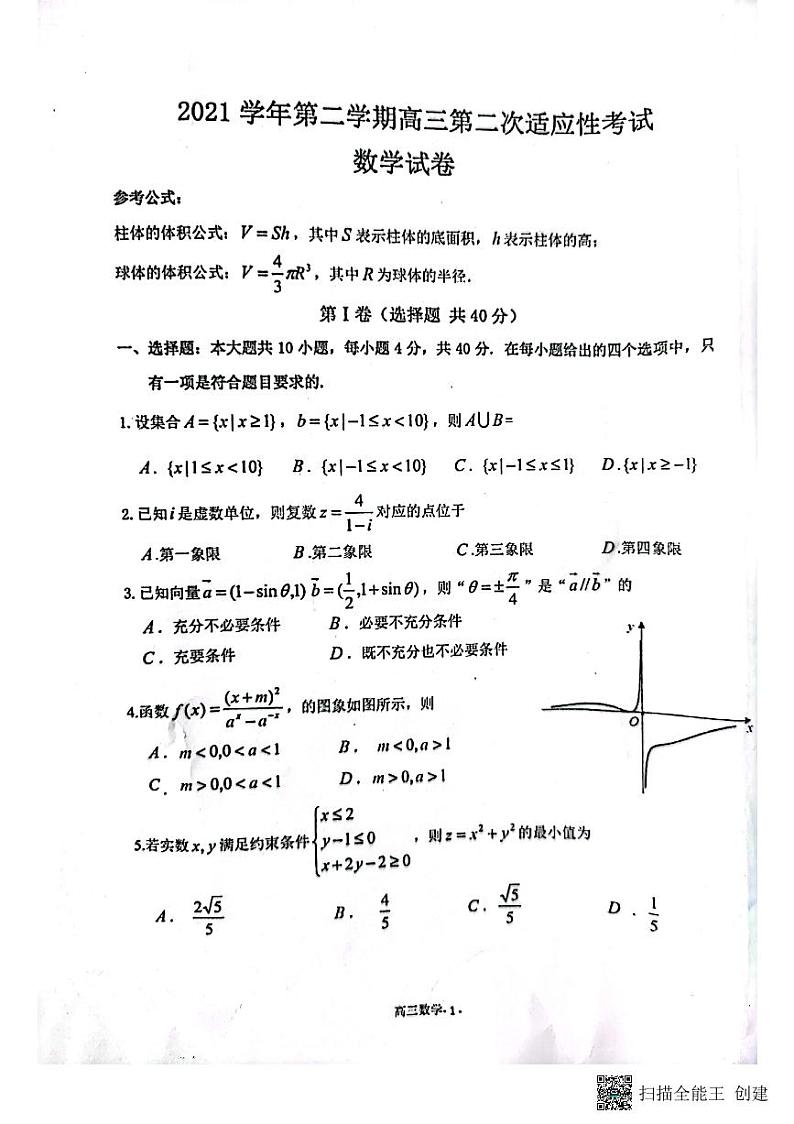 2021 学年第二学期高三第二次适应性考试
数学试卷
参考公式：
柱体的体积公式：V=Sh，其中S表示柱体的底面积，h表示柱体的高；
球体的体积公式：V=\frac{4}{3}πR³，其中R为球体的半径.
第Ⅰ卷（选择题 共40分）
一、选择题：本大题共10小题，每小题4分，共40分．在每小题给出的四个选项中，只
有一项是符合题目要求的.
1.设集合A={x|x≥1}，b={x|-1≤x<10}，则A∪B=
A．{x|1≤x<10} B．{x|-1≤x<10} C．{x|-1≤x≤1} D.{x|x≥-1}
2.已知i是虚数单位，则复数z=\frac{4}{1-i}对应的点位于
A.第一象限 B.第二象限 C.第三象限 D.第四象限
3.已知向量\vec{a}=(1-sinθ,1) \vec{b}=(\frac{1}{2},1+sinθ)，则“θ=±\frac{π}{4}”是“\vec{a}//\vec{b}”的
A．充分不必要条件 B．必要不充分条件
C．充要条件 D．既不充分也不必要条件
4.函数f(x)=\frac{(x+m)²}{a^x-a^{-x}}，的图象如图所示，则
A．m<0,0<a<1 B．m<0,a>1
C．m>0,0<a<1 D．m>0,a>1
y
O
x
5.若实数x,y满足约束条件{x≤2
y-1≤0
x+2y-2≥0
，则z=x²+y²的最小值为
A．\frac{2√5}{5} B．\frac{4}{5} C．\frac{√5}{5} D．\frac{1}{5}
高三数学·1·
扫描全能王 创建